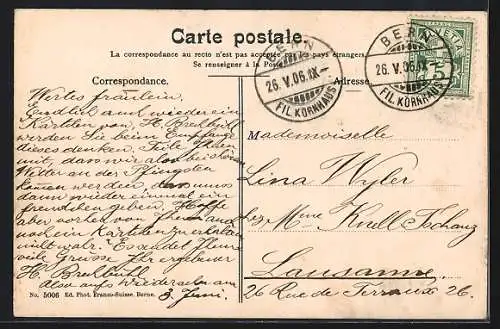 Carte postale.
La correspondance au recto n'est pas acceptée par les pays étrangers
Se renseigner à la Poste
BERN
26.V.06.IX-
FIL. KORNHAUS
BERN
26.V.06.IX-
FIL. KORNHAUS
HELVETIA
5
Correspondance.
Adresse
Wertes fräulein.
Endlich auch wieder ein
Kärtlein von H.
werden Sie beim Empfang
dieses denken. Teile Ihnen
mit, dass wir also bei schönem
Wetter an der Pfingsten
kommen werden, das muss
dann wieder einmal ein
werden. Hoffe
aber vorher von Ihnen auch
noch ein Kärtlein zu erhalten
nicht wahr. Es sendet Ihnen
viele Grüsse Ihr ergebener
H.
Also auf Wiedersehn am
3. Juni.
Mademoiselle
Lina Wyler
chez Mme Knell-Tschanz
Lausanne
26 Rue de Terreaux 26.
No. 5006 Ed. Phot. Franco-Suisse, Berne.